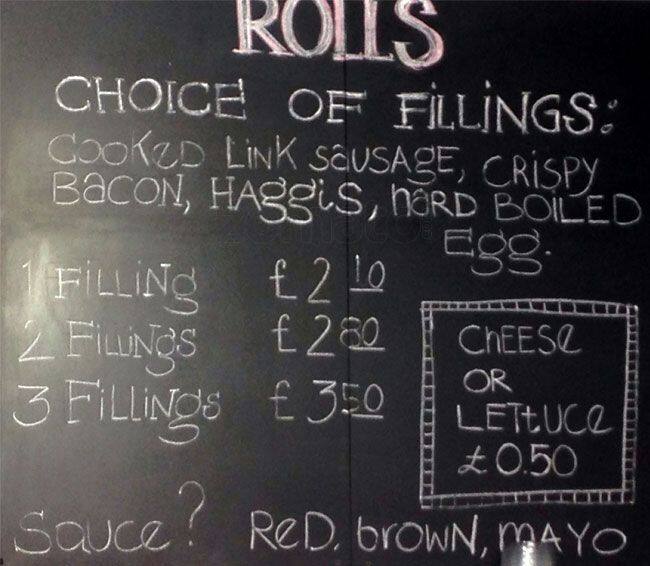 ROLLS
CHOICE OF FiLLiNGS:
COOKeD LiNK SaUSAGE, CRiSPY
BaCON, HAggiS, hARD BOiLED
Egg.
1 FiLLiNg £2 10
2 FiLLiNgs £2 80
3 FiLLiNgs £3 50
ChEESe
OR
LETtUCe
£0.50
Sauce? ReD, brOWN, mAYO